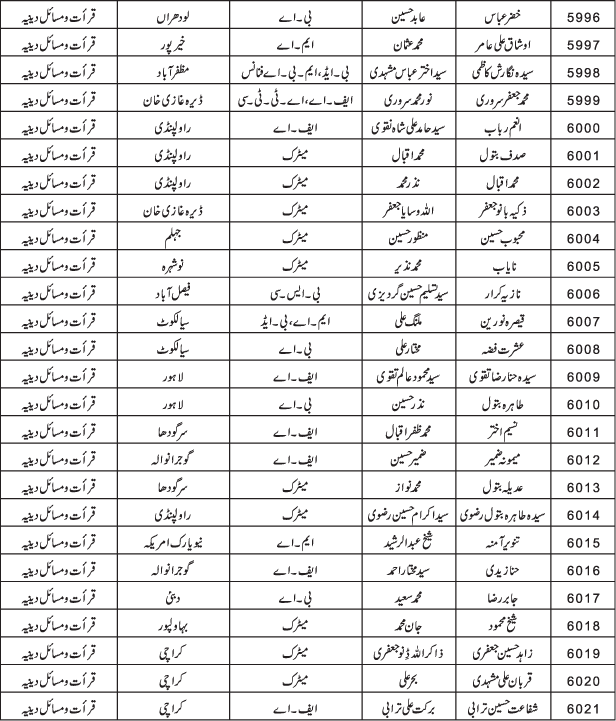 5996 خضر عباس عابد حسین بی۔اے لودھراں قرأت ومسائل دینیہ
5997 اوشاق علی عامر محمد عثمان ایم۔اے خیرپور قرأت ومسائل دینیہ
5998 سیدہ نگارش کاظمی سید اختر عباس مشہدی بی۔ایڈ،ایم۔بی۔اے فنانس مظفرآباد قرأت ومسائل دینیہ
5999 محمد جعفر سروری نور محمد سروری ایف۔اے،اے۔ٹی۔ٹی۔سی ڈیرہ غازی خان قرأت ومسائل دینیہ
6000 انعم رباب سید حامد علی شاہ نقوی ایف۔اے راولپنڈی قرأت ومسائل دینیہ
6001 صدف بتول محمد اقبال میٹرک راولپنڈی قرأت ومسائل دینیہ
6002 محمد اقبال نذر محمد میٹرک راولپنڈی قرأت ومسائل دینیہ
6003 ذکیہ بانو جعفر اللہ وسایا جعفر میٹرک ڈیرہ غازی خان قرأت ومسائل دینیہ
6004 محبوب حسین منظور حسین میٹرک جہلم قرأت ومسائل دینیہ
6005 نایاب محمد نذیر میٹرک نوشہرہ قرأت ومسائل دینیہ
6006 نازیہ کرار سید تسلیم حسین گردیزی بی۔ایس۔سی فیصل آباد قرأت ومسائل دینیہ
6007 قیصرہ نورین ملنگ علی ایم۔اے،بی۔ایڈ سیالکوٹ قرأت ومسائل دینیہ
6008 عشرت فضہ مختار علی بی۔اے سیالکوٹ قرأت ومسائل دینیہ
6009 سیدہ حنا رضا تقوی سید محمود عالم تقوی ایف۔اے لاہور قرأت ومسائل دینیہ
6010 طاہرہ بتول نذر حسین بی۔اے لاہور قرأت ومسائل دینیہ
6011 نسیم اختر محمد ظفر اقبال ایف۔اے سرگودھا قرأت ومسائل دینیہ
6012 میمونہ ضمیر ضمیر حسین ایف۔اے گوجرانوالہ قرأت ومسائل دینیہ
6013 عدیلہ بتول محمد نواز میٹرک سرگودھا قرأت ومسائل دینیہ
6014 سیدہ طاہرہ بتول رضوی سید اکرام حسین رضوی میٹرک راولپنڈی قرأت ومسائل دینیہ
6015 تنویر آمنہ شیخ عبدالرشید ایم۔اے نیویارک امریکہ قرأت ومسائل دینیہ
6016 حنا زیدی سید مختار احمد ایف۔اے گوجرانوالہ قرأت ومسائل دینیہ
6017 جابر رضا محمد سعید بی۔اے دبئی قرأت ومسائل دینیہ
6018 شیخ محمود جان محمد میٹرک بہاولپور قرأت ومسائل دینیہ
6019 زاہد حسین جعفری ذاکر اللہ ڈنو جعفری میٹرک کراچی قرأت ومسائل دینیہ
6020 قربان علی مشہدی بحر علی میٹرک کراچی قرأت ومسائل دینیہ
6021 شفاعت حسین ترابی برکت علی ترابی ایف۔اے کراچی قرأت ومسائل دینیہ